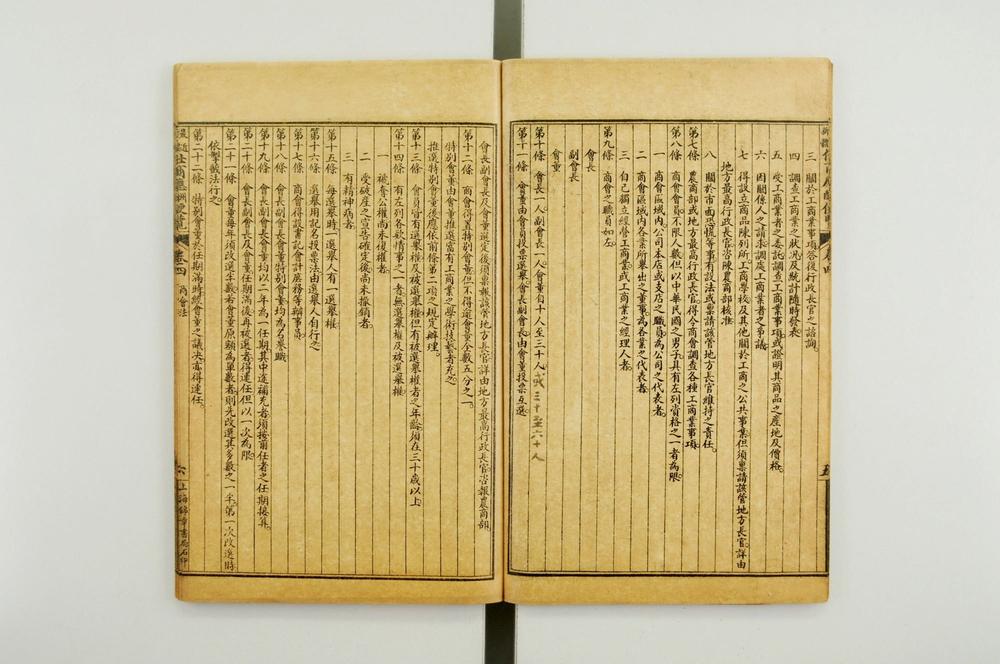 三　關於工商業事項答後行政長官之諮詢。
四　調查工商業之狀況及統計隨時發表。
五　受工商業者之委託調查工商業事項或證明其商品之產地及價格。
六　因關係人之請求調處工商業者之爭議。
七　得設立商品陳列所工商學校及其他關於工商之公共事業但須稟請該管地方長官詳由
地方最高行政長官咨陳農商部核准。
八　關於市面恐慌等事有設法或稟請該管地方長官維持之責任。
第七條　農商部或地方最高行政長官得令商會調查各種工商業事項。
第八條　商會會員不限人數但以中華民國之男子具有左列資格之一者為限。
一　商會區域內公司本店或支店之職員為公司之代表者。
二　商會區域內各業所舉出之董事為各業之代表者。
三　自己獨立經營工商業或工商業之經理人者。
第九條　商會之職員如左。
會長
副會長
會董
第十條　會長一人副會長一人會董自十人至三十人。或三十至六十人
第十一條　會董由會員投票選舉。會長副會長由會董投票互選。
會長副會長及會董選定後須稟報該管地方長官詳由地方最高行政長官咨報農商部。
第十二條　商會得置特別會董但不得逾會董全數五分之一。
特別會董由會董推選富有工商業之學術技藝者充之。
推選特別會董後應依前條第二項之規定辦理。
第十三條　會員皆有選舉權及被選舉權但有被選舉權者之年齡須在三十歲以上。
第十四條　有左列各款情事之一者無選舉權及被選舉權。
一　褫奪公權尚未復權者。
二　受破產之宣告確定後尚未撤銷者。
三　有精神病者。
第十五條　每選舉時一選舉人有一選舉權。
第十六條　選舉用記名投票法由選舉人自行之。
第十七條　商會得設書記會計庶務等辦事員。
第十八條　會長副會長會董特別會董均為名譽職。
第十九條　會長副會長會董均以二年為一任期其中途補充者須按前任者之任期接算。
第二十條　會長副會長及會董任期滿後再被選者得連任但以一次為限。
第二十一條　會董每年須改選半數若會董原額為單數者則先改選其多數之一半。第一次改選時
依掣籤法行之。
第二十二條　特別會董於任期滿時經會董之議決亦得連任。
卷四　商會法
六　上海錦章書局石印